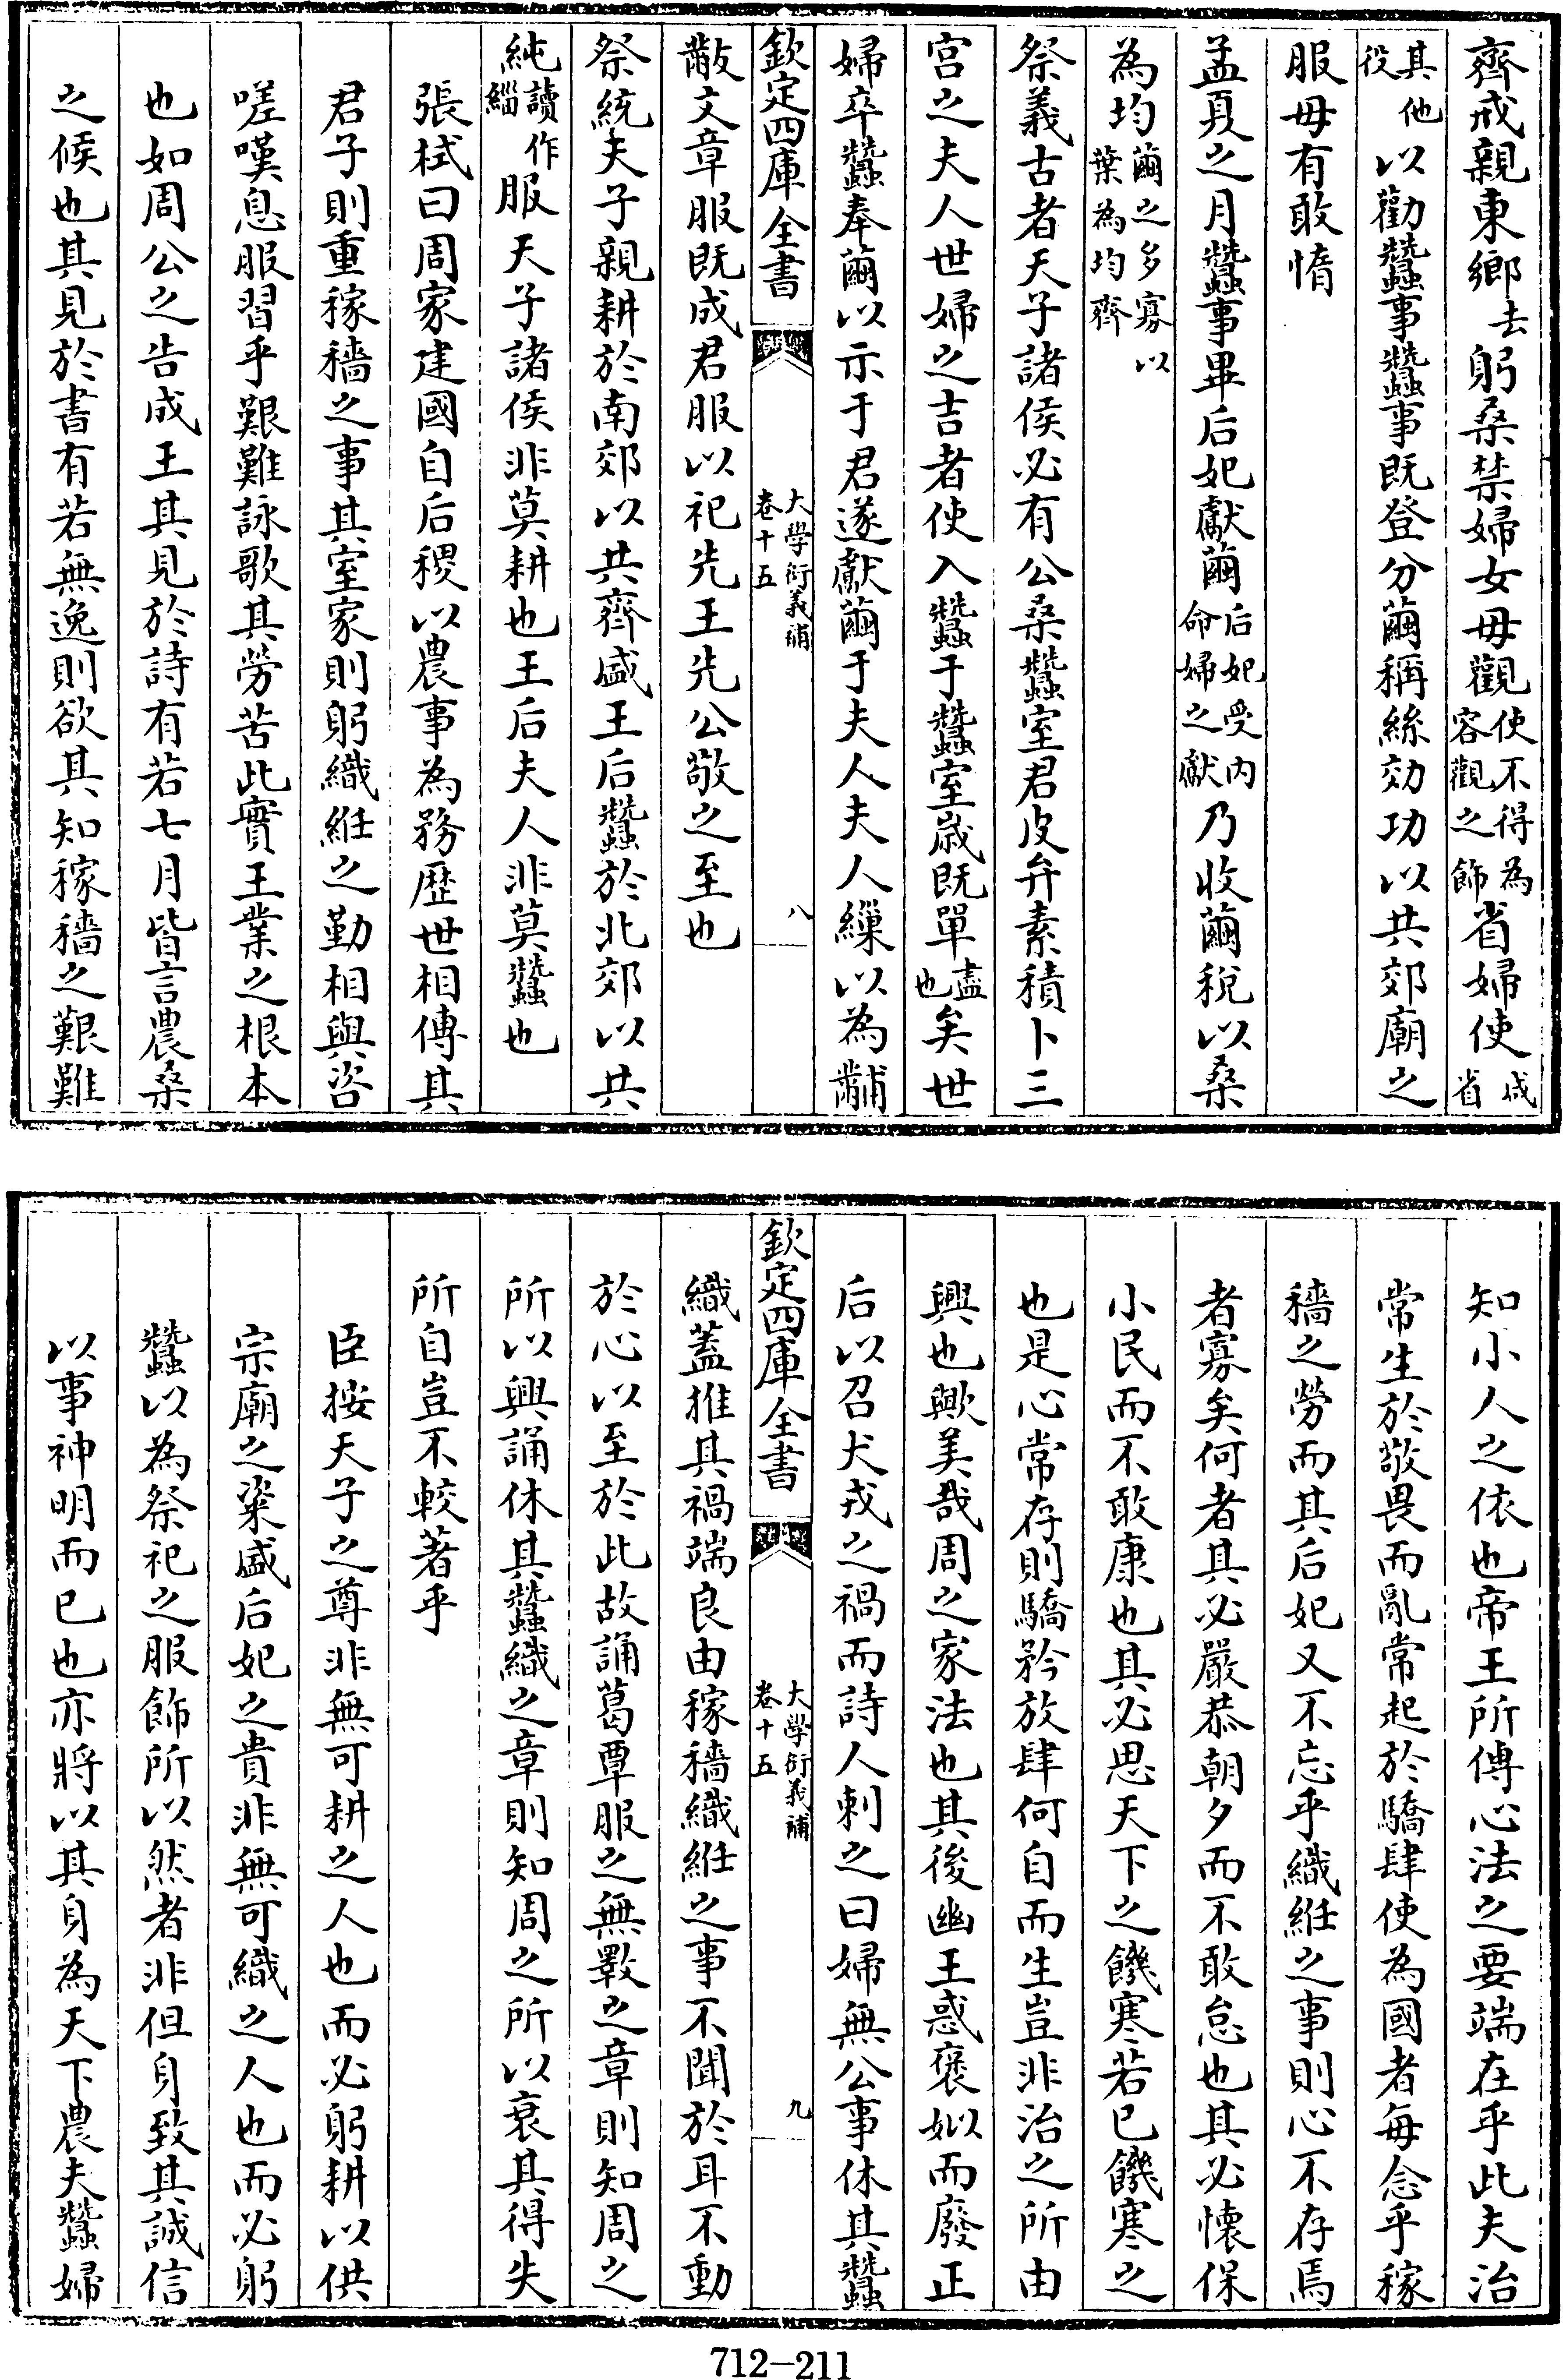 齊戒親東鄉去躬桑禁婦女毋觀使不得為容觀之飾省婦使咸省
其他役以勸蠶事蠶事既登分繭稱絲効功以共郊廟之
服毋有敢惰
孟夏之月蠶事畢后妃獻繭后妃受内命婦之獻乃收繭稅以桑
為均繭之多寡以葉為均齊
祭義古者天子諸侯必有公桑蠶室君皮弁素積卜三
宮之夫人世婦之吉者使入蠶于蠶室歲既單盡也矣世
婦卒蠶奉繭以示于君遂獻繭于夫人夫人繅以為黼
欽定四庫全書 大學衍義補 卷十五 八
黻文章服既成君服以祀先王先公敬之至也
祭統夫子親耕於南郊以共齊盛王后蠶於北郊以共
純讀作緇服天子諸侯非莫耕也王后夫人非莫蠶也
張栻曰周家建國自后稷以農事為務歴世相傳其
君子則重稼穡之事其室家則躬織絍之勤相與咨
嗟嘆息服習乎艱難詠歌其勞苦此實王業之根本
也如周公之告成王其見於詩有若七月皆言農桑
之候也其見於書有若無逸則欲其知稼穡之艱難
知小人之依也帝王所傳心法之要端在乎此夫治
常生於敬畏而亂常起於驕肆使為國者每念乎稼
穡之勞而其后妃又不忘乎織絍之事則心不存焉
者寡矣何者其必嚴恭朝夕而不敢怠也其必懷保
小民而不敢康也其必思天下之饑寒若已饑寒之
也是心常存則驕矜放肆何自而生豈非治之所由
興也歟美哉周之家法也其後幽王惑褒姒而廢正
后以召犬戎之禍而詩人刺之曰婦無公事休其蠶
欽定四庫全書 大學衍義補 卷十五 九
織蓋推其禍端良由稼穡織絍之事不聞於耳不動
於心以至於此故誦葛覃服之無斁之章則知周之
所以興誦休其蠶織之章則知周之所以衰其得失
所自豈不較著乎
臣按天子之尊非無可耕之人也而必躬耕以供
宗廟之粢盛后妃之貴非無可織之人也而必躬
蠶以為祭祀之服飾所以然者非但身致其誠信
以事神明而已也亦將以其身為天下農夫蠶婦
712-211